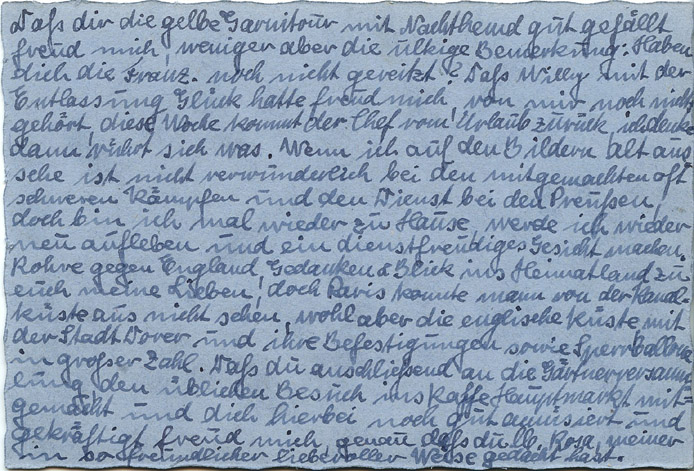 Daſs dir die gelbe Garnitour mit Nachthemd gut gefällt
freud mich, weniger aber die ulkige Bemerkung: Haben
dich die Franz. noch nicht gereitzt? Daſs Willy mit der
Entlassung Glück hatte freud mich, von mir noch nicht
gehört, diese Woche kommt der Chef vom Urlaub zurück, ich denke
dann rührt sich was. Wenn ich auf den Bildern alt aus
sehe ist nicht verwunderlich bei den mitgemachten oft
schweren Kämpfen und den Dienst bei den Preuſsen,
doch bin ich mal wieder zu Hause, werde ich wieder
neu aufleben und ein dienstfreudiges Gesicht machen.
Rohre gegen England, Gedanken & Blick ins Heimatland zu
euch meine Lieben! doch Paris konnte mann von der Kanal-
küste aus nicht sehen, wohl aber die englische Küste mit
der Stadt Dover und ihre Befestigungen sowie Sperrballone
in groſser Zahl. Daſs du anschlieſsend an die Gärtnerversamm
lung den üblichen Besuch ins Kaffe Hauptmarkt mit=
gemacht und dich hierbei noch gut amüsiert und
gekräftigt freud mich, genau daſs du lb. Rosa, meiner
in so freundlicher liebevoller Weise gedacht hast.